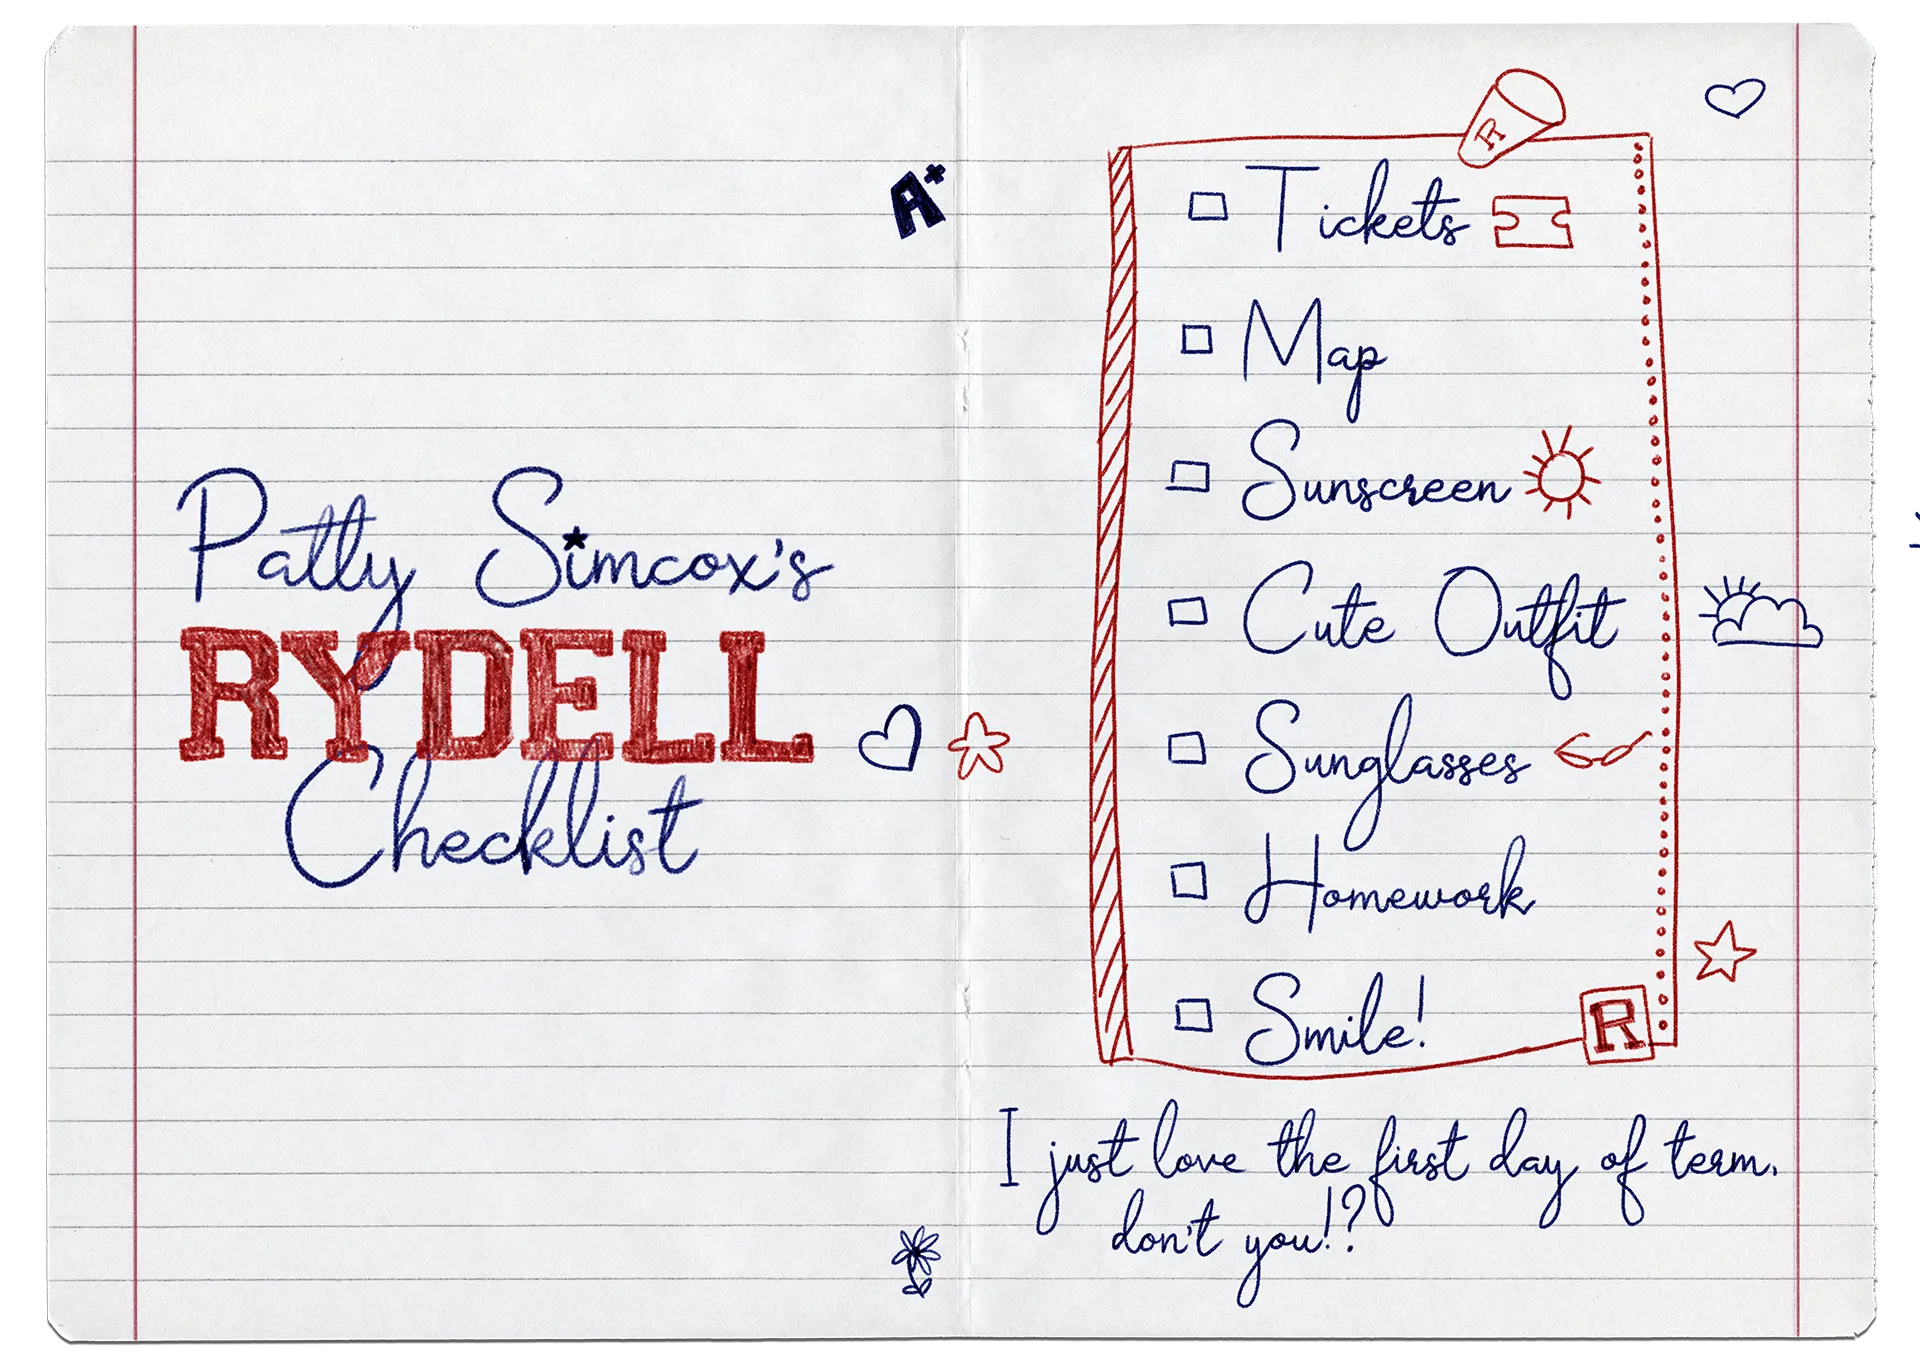 A+
Patty Simcox's
RYDELL
Checklist
R
Tickets
Map
Sunscreen
Cute Outfit
Sunglasses
Homework
Smile!
R
I just love the first day of term.
don't you!?